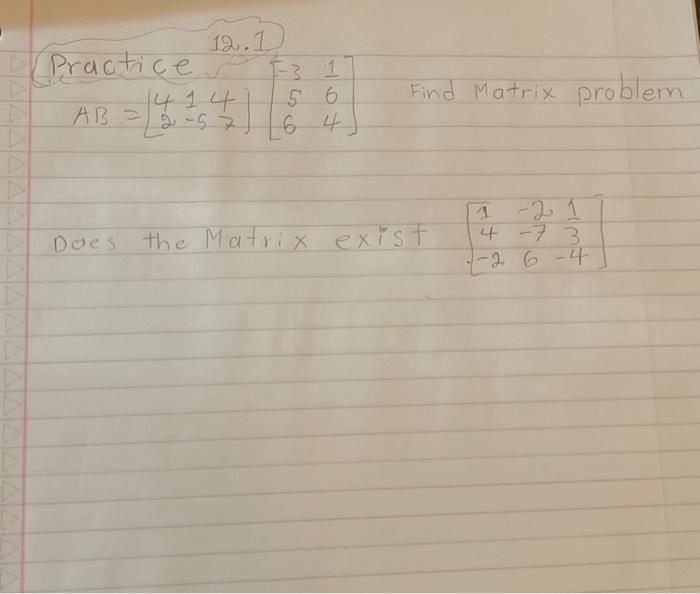 12.1
Practice
AB = [4 1 4 [-3 1
2 -5 7] 5 6
6 4] Find Matrix problem
Does the Matrix exist [1 -2 1
4 -7 3
-2 6 -4]